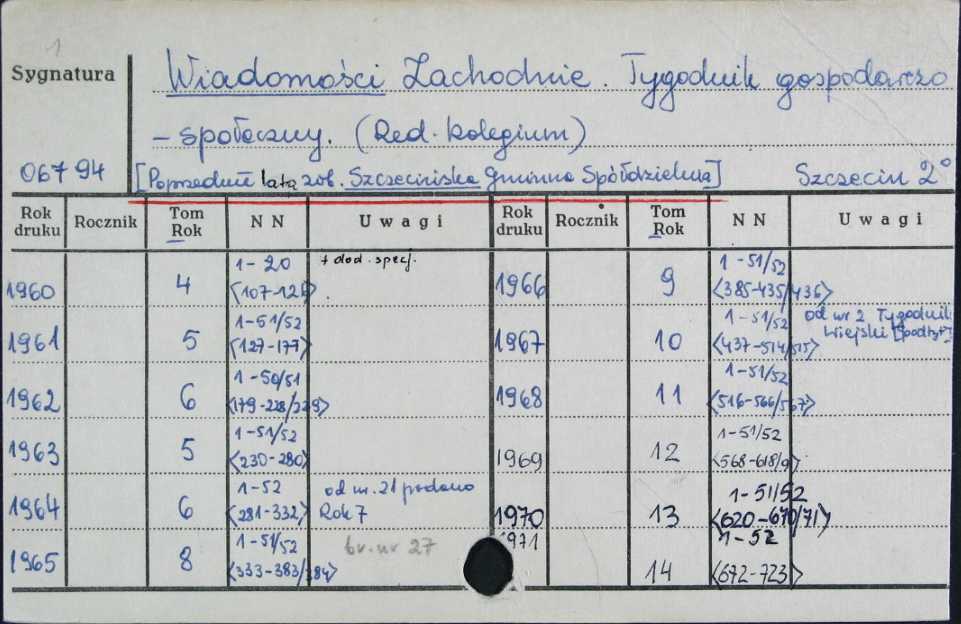 1
Sygnatura
Wiadomości Zachodnie. Tygodnik gospodarczo
- społeczny. (Red. kolegium)
06794 [Poprzednie lata zob. Szczecińska Gminna Spółdzielnia] Szczecin 2°
Rok druku Rocznik Tom Rok NN Uwagi Rok druku Rocznik Tom Rok NN Uwagi
1960 4 1-20 + dod. specj. 1966 9 1-51/52
<107-126> <385-435/436>
1961 5 1-51/52 1967 10 1-51/52 od nr 2 Tygodnik
<127-177> <437-514/515> Wiejski [podtyt]
1962 6 1-50/51 1968 11 1-51/52
<179-228/229> <516-566/567>
1963 5 1-51/52 1969 12 1-51/52
<230-280> <568-618/9>
1964 6 1-52 od nr. 21 podano 1970 13 1-51/52
<281-332> Rok 7 <620-670/71>
1965 8 1-51/52 br. nr 27 1971 14 1-52
<333-383/384> <672-723>